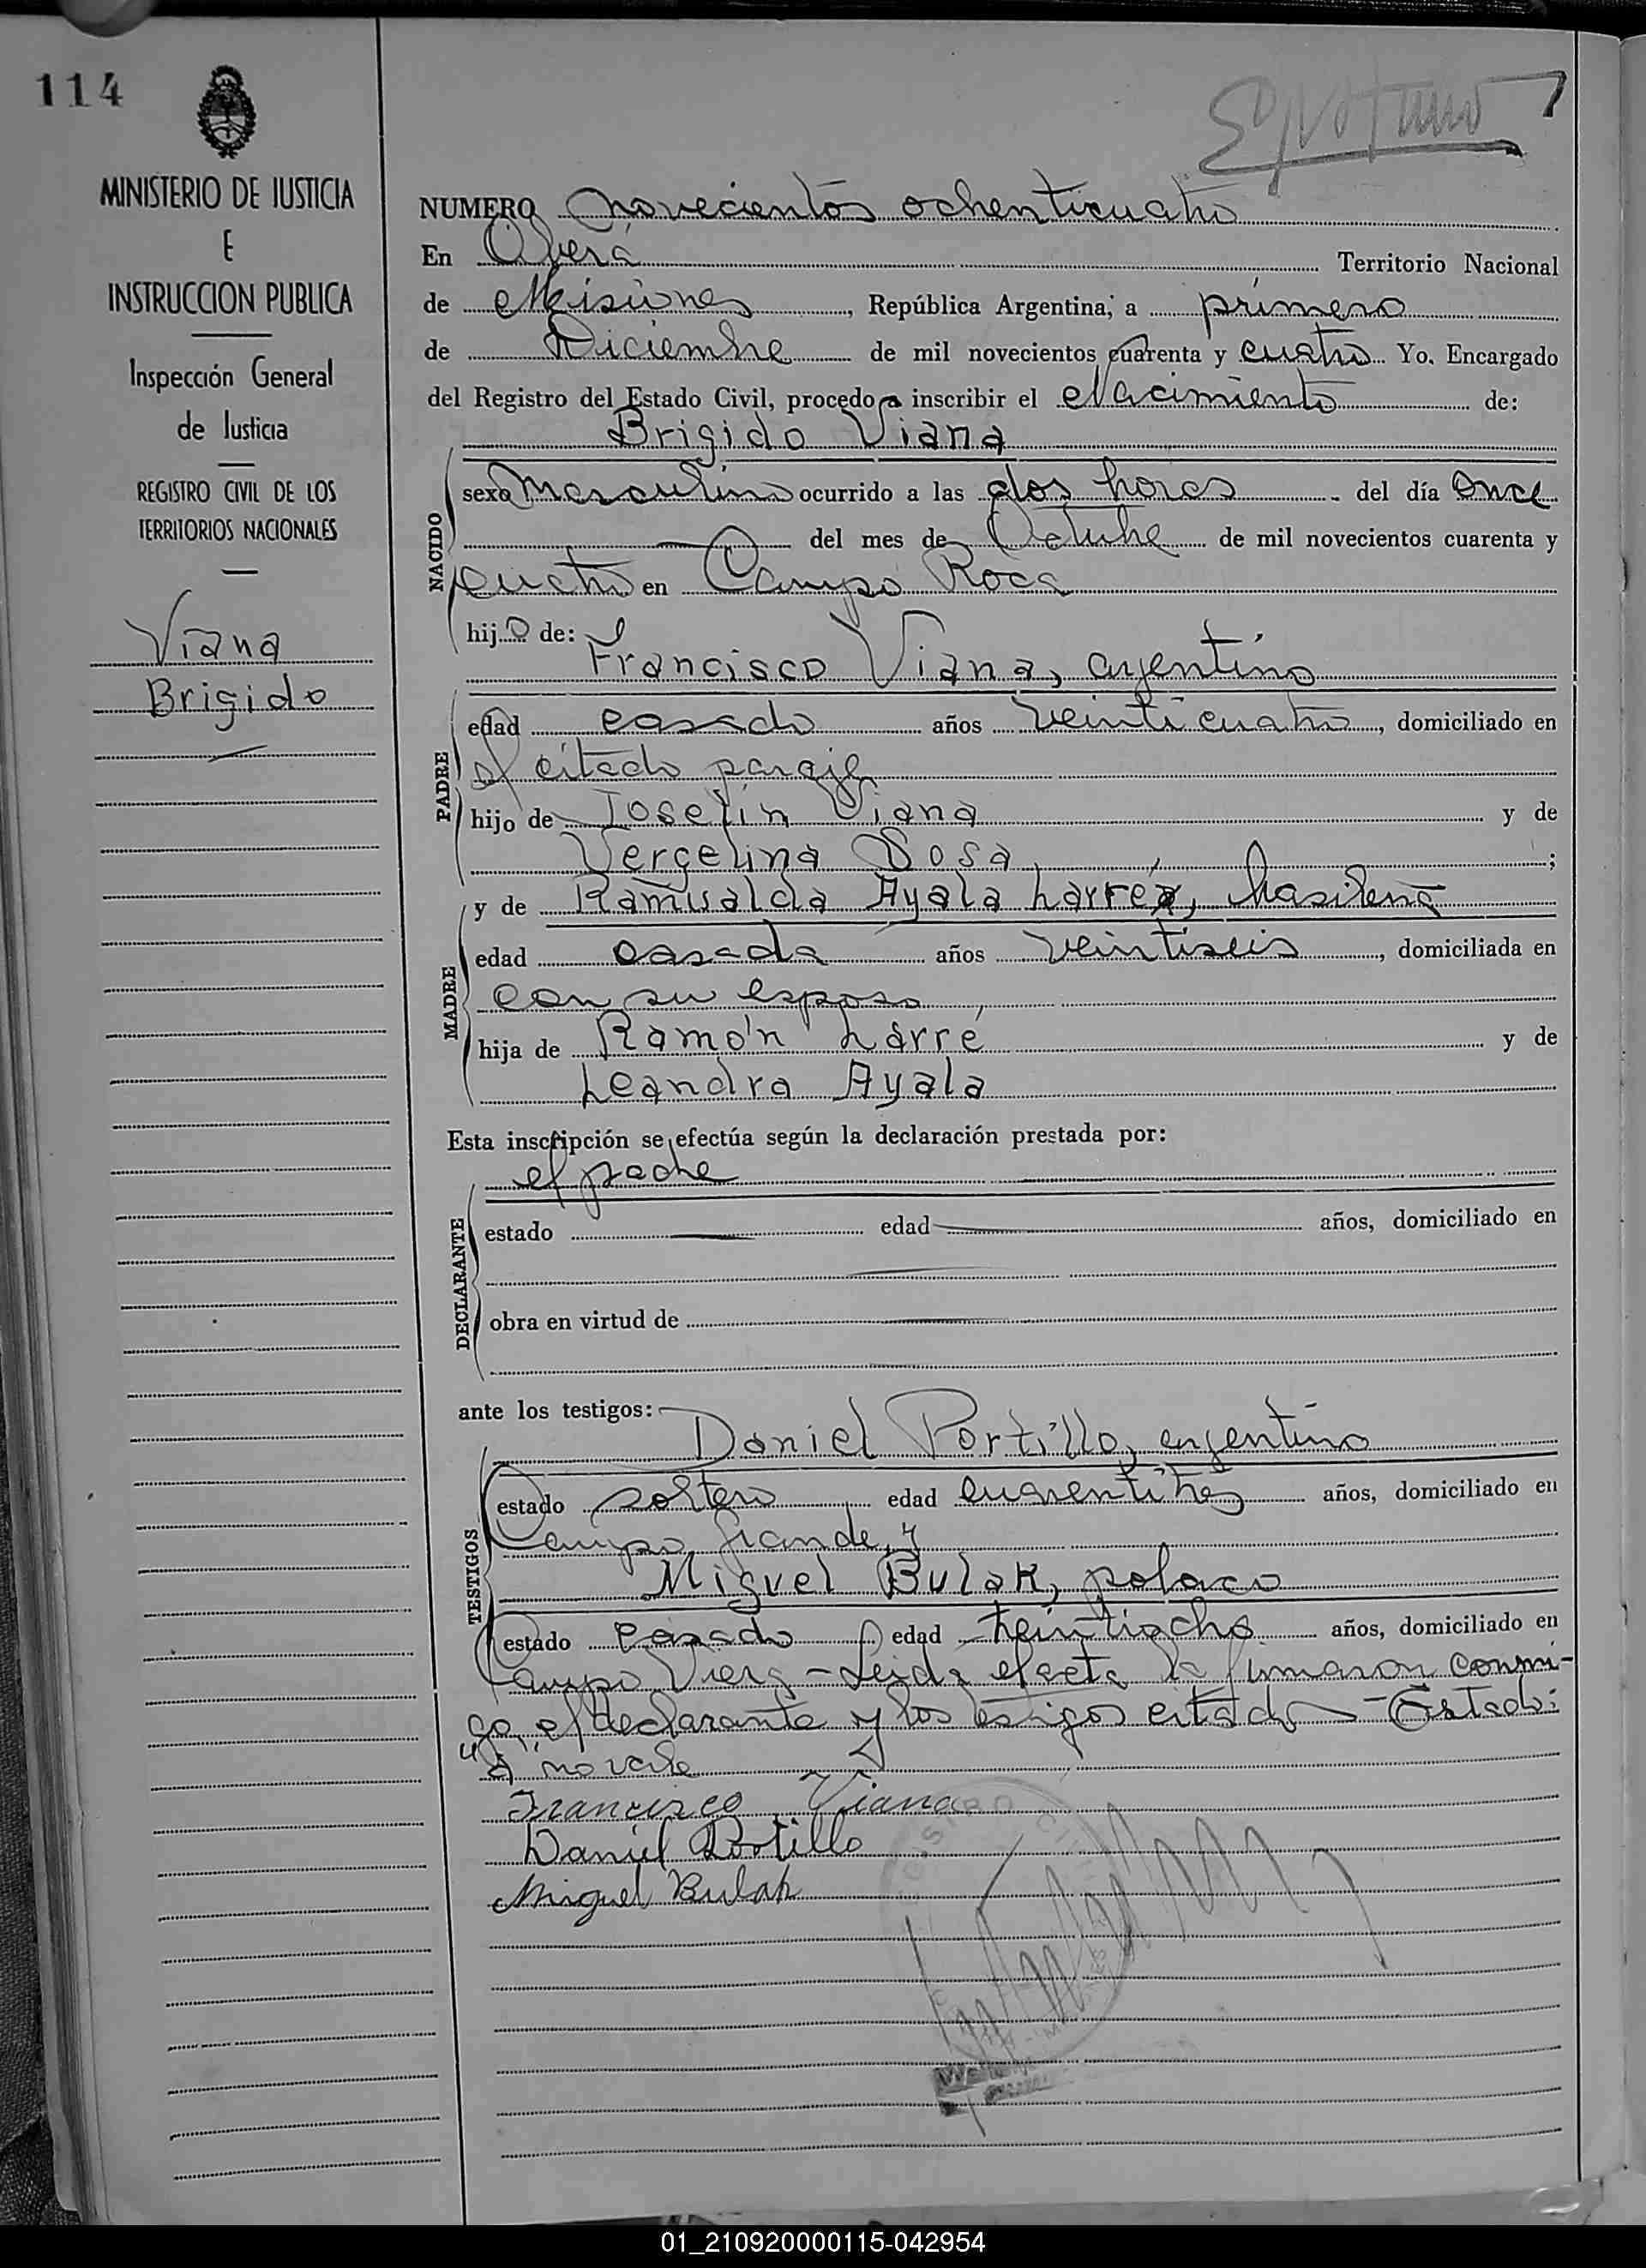 114
MINISTERIO DE JUSTICIA
E
INSTRUCCION PUBLICA
Inspección General
de Justicia
REGISTRO CIVIL DE LOS
TERRITORIOS NACIONALES
Viana
Brigido
NUMERO novecientos ochenticuatro
En Oberá Territorio Nacional
de Misiones, República Argentina, a primero
de Diciembre de mil novecientos cuarenta y cuatro Yo. Encargado
del Registro del Estado Civil, procedo a inscribir el Nacimiento de:
Brigido Viana
NACIDO
sexo Masculino ocurrido a las dos horas del día once
del mes de Octubre de mil novecientos cuarenta y
cuatro en Campo Roca
hijo de:
Francisco Viana, argentino
PADRE
edad casado años veinticuatro, domiciliado en
el citado paraje
hijo de Joselin Viana y de
Vergelina Sosa ;
y de Ramualda Ayala Larré, brasileña
MADRE
edad casada años veintiseis, domiciliada en
con su esposo
hija de Ramón Larré y de
Leandra Ayala
Esta inscripción se efectúa según la declaración prestada por:
el padre
DECLARANTE
estado edad años, domiciliado en
obra en virtud de
ante los testigos:
Daniel Portillo, argentino
TESTIGOS
estado soltero edad cuarentitres años, domiciliado en
Campo Grande, y
Miguel Bulak, polaco
estado casado edad treintiocho años, domiciliado en
Campo Viera - Leida el acta la firmaron conmi-
go el declarante y los testigos citados - Testado:
no vale
Francisco Viana
Daniel Portillo
Miguel Bulak
01_210920000115-042954